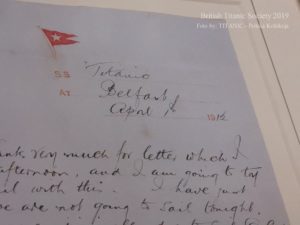 British Titanic Society 2019
Foto by: TITANIC - Polska Kolekcja
SS Titanic
AT Belfast
April 1st 1912
very much for letter which I
afternoon, and I am going to try
with this. I have just
we are not going to sail tonight,